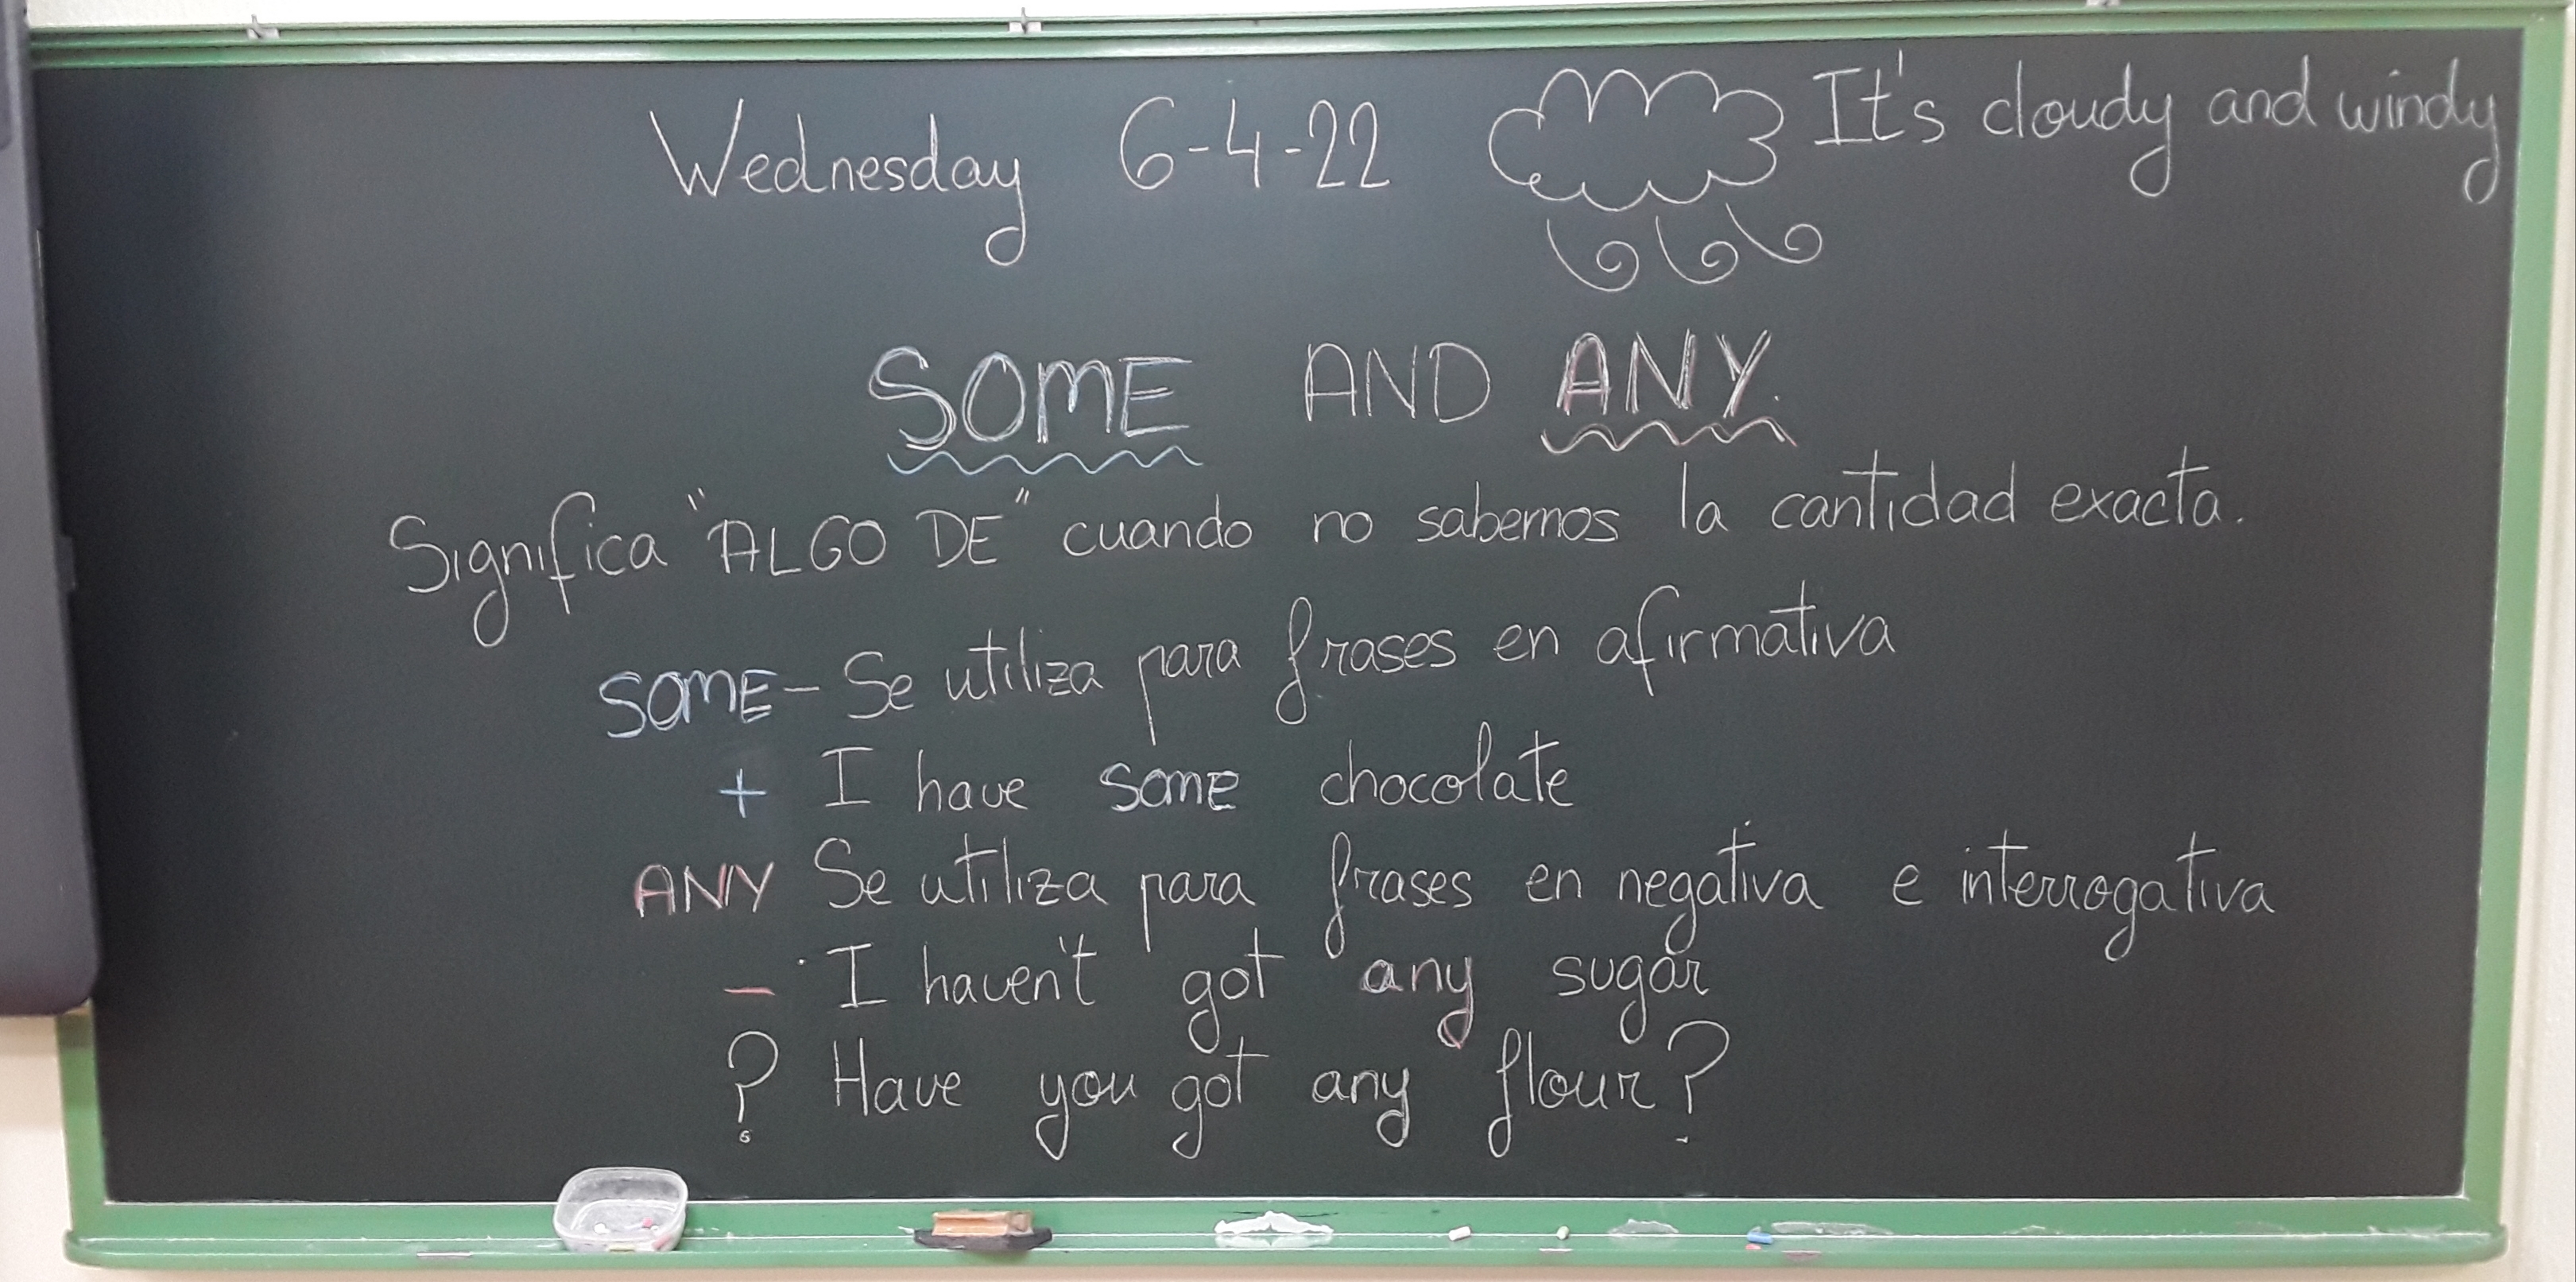 Wednesday 6-4-22 It's cloudy and windy
SOME AND ANY.
Significa "ALGO DE" cuando no sabemos la cantidad exacta.
SOME- Se utiliza para frases en afirmativa
+ I have some chocolate
ANY Se utiliza para frases en negativa e interrogativa
- I haven't got any sugar
? Have you got any flour?